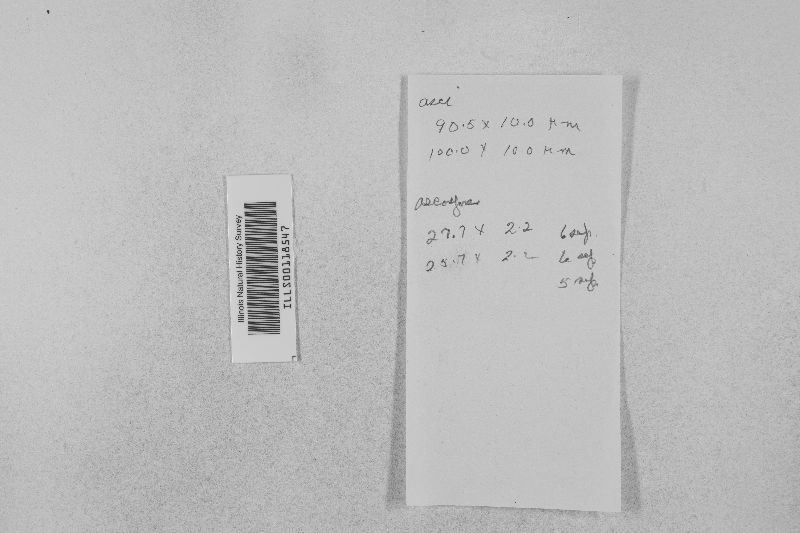 Illinois Natural History Survey
ILLS00118547
asci
90.5 x 10.0 μm
100.0 x 10 0 μm
ascospores
27.7 x 2.2 6 sep.
25.7 x 2.2 6 sep
5 sep.